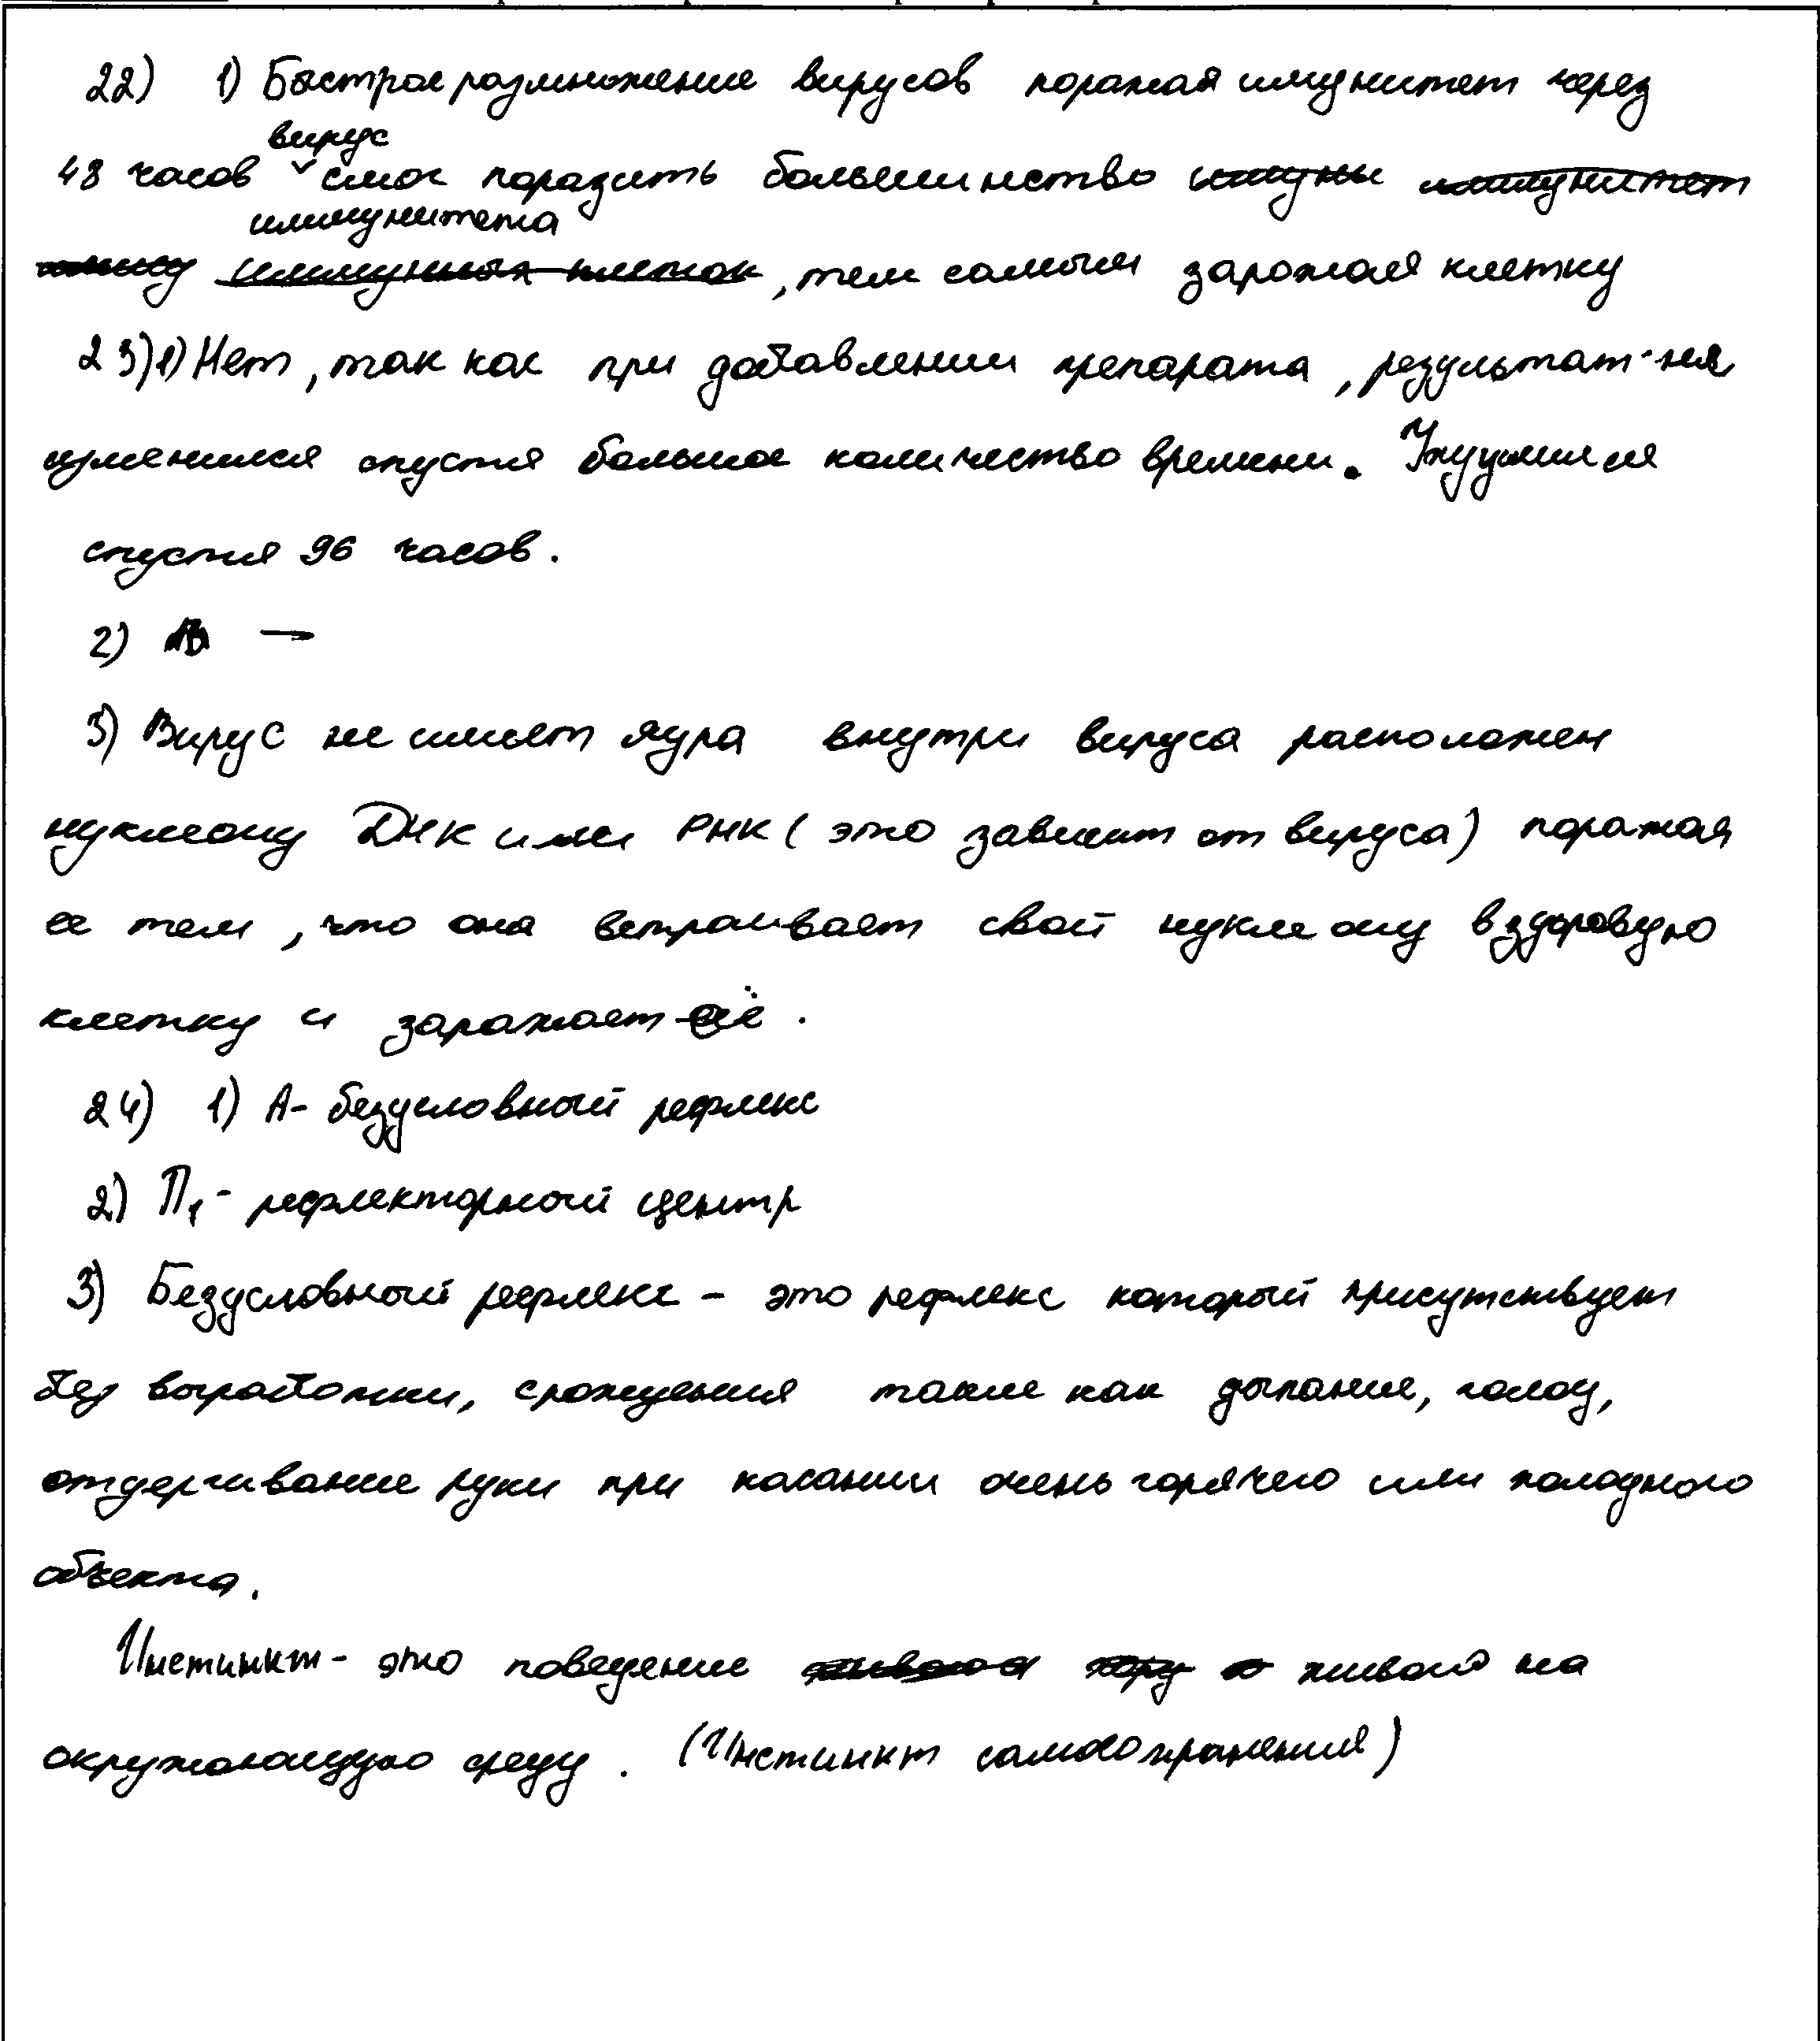 22) 1) Быстрое размножение вирусов поражая имунитет через
вирус
48 часов смог поразить большинство
иммунитета
, тем самым заражая клетку
23) 1) Нет, так как при добавлении препарата, результат не
изменился спустя большое количество времени. Ухудшился
спустя 96 часов.
2) —
3) Вирус не имеет ядра внутри вируса расположен
нуклеоид ДНК или РНК (это зависит от вируса) поражая
ее тем, что она встраивает свой нуклеоид в здоровую
клетку и заражает её.
24) 1) А- безусловный рефлекс
2) П1- рефлекторный центр
3) Безусловный рефлекс - это рефлекс который присутствует
без выработки, срождения такие как дыхание, голод,
отдергивание руки при касании очень горячего или холодного
объекта.
Инстинкт- это поведение живой на
окружающую среду. (Инстинкт самосохранения)